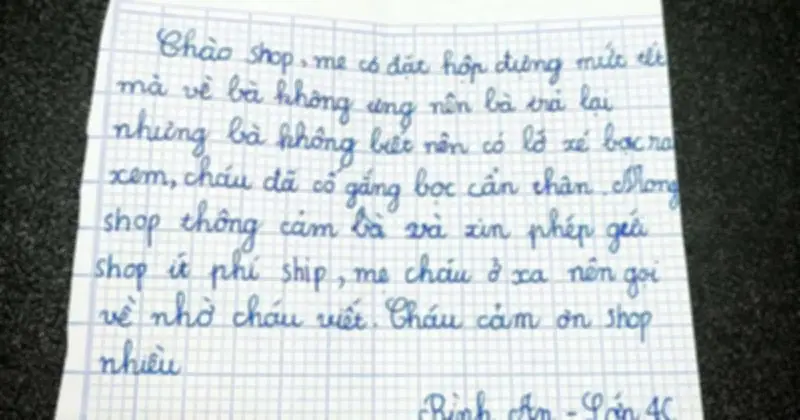 Chào shop, mẹ có đặt hộp đựng mứt tết
mà về bà không ưng nên bà trả lại
nhưng bà không biết nên có lỡ xé bọc ra
xem, cháu đã cố gắng bọc cẩn thân. Mong
shop thông cảm bà và xin phép gửi
shop ít phí ship, mẹ cháu ở xa nên gọi
về nhờ cháu viết. Cháu cảm ơn shop
nhiều
Bình An - Lớp 4C